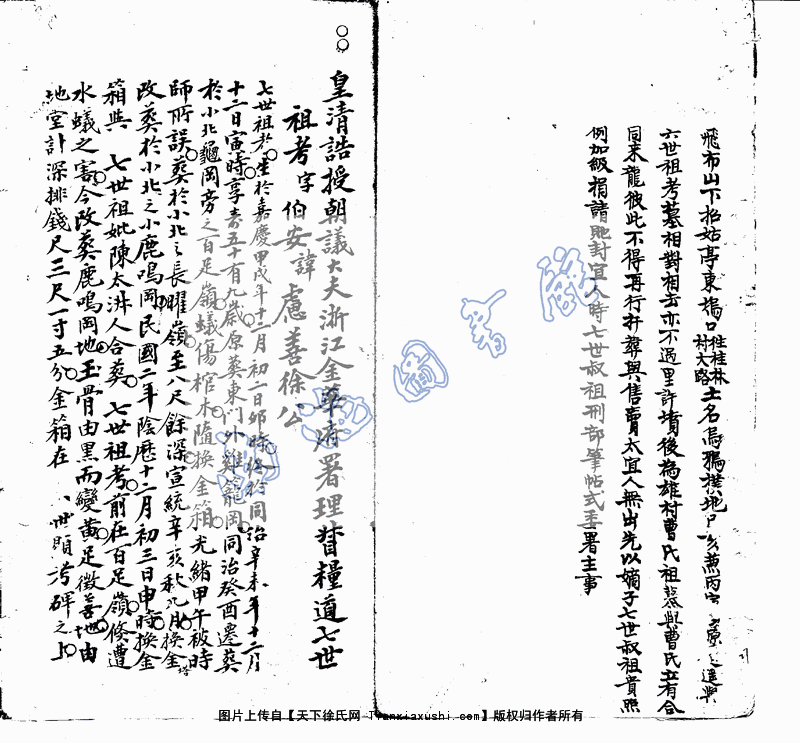 飛布山下招姑亭東塢口往桂林村大路土名烏鵶撲地
六世祖考墓相對相去亦不過里許墳後為雄村曹氏祖墓與曹氏立有合
同來龍彼此不得再行扦葬與售賣太宜人無出先以嫡子七世叔祖貴照
例加級捐請貤封宜人時七世叔祖刑部筆帖式委署主事
皇清誥授朝議大夫浙江金華府署理督糧道七世
祖考字伯安諱慮善徐公
七世祖考生於嘉慶甲戌年十二月初二日卯時終於同治辛未年十二月
十二日寅時享春五十有九歲原葬東門外雞籠岡同治癸酉遷葬
於小北龜岡旁之百足嶺蟻傷棺木隨換金箱光緒甲午被時
師所誤葬於小北之長曜嶺至八尺餘深宣統辛亥秋九月換金塔
改葬於小北之小鹿鳴岡民國二年陰歷十二月初三日申時換金
箱與 七世祖妣陳太淑人合葬 七世祖考前在百足嶺倏遭
水蟻之害今改葬鹿鳴岡地玉骨由黑而變黃足徵善地由
地堂計深排錢尺三尺一寸五分金箱在 世顯考碑之上
圖片上传自【天下徐氏网 Tianxiaxushi.com】版权归作者所有